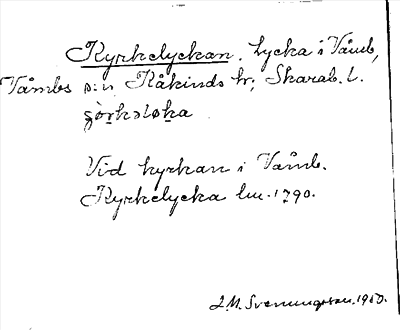 Kyrkelyckan. Lycka i Våmb,
Våmbs s:n Kåkinds hr, Skarab. l.
Vid kyrkan i Våmb.
Kyrkelycka lm. 1790.
J. M. Svenungsson.